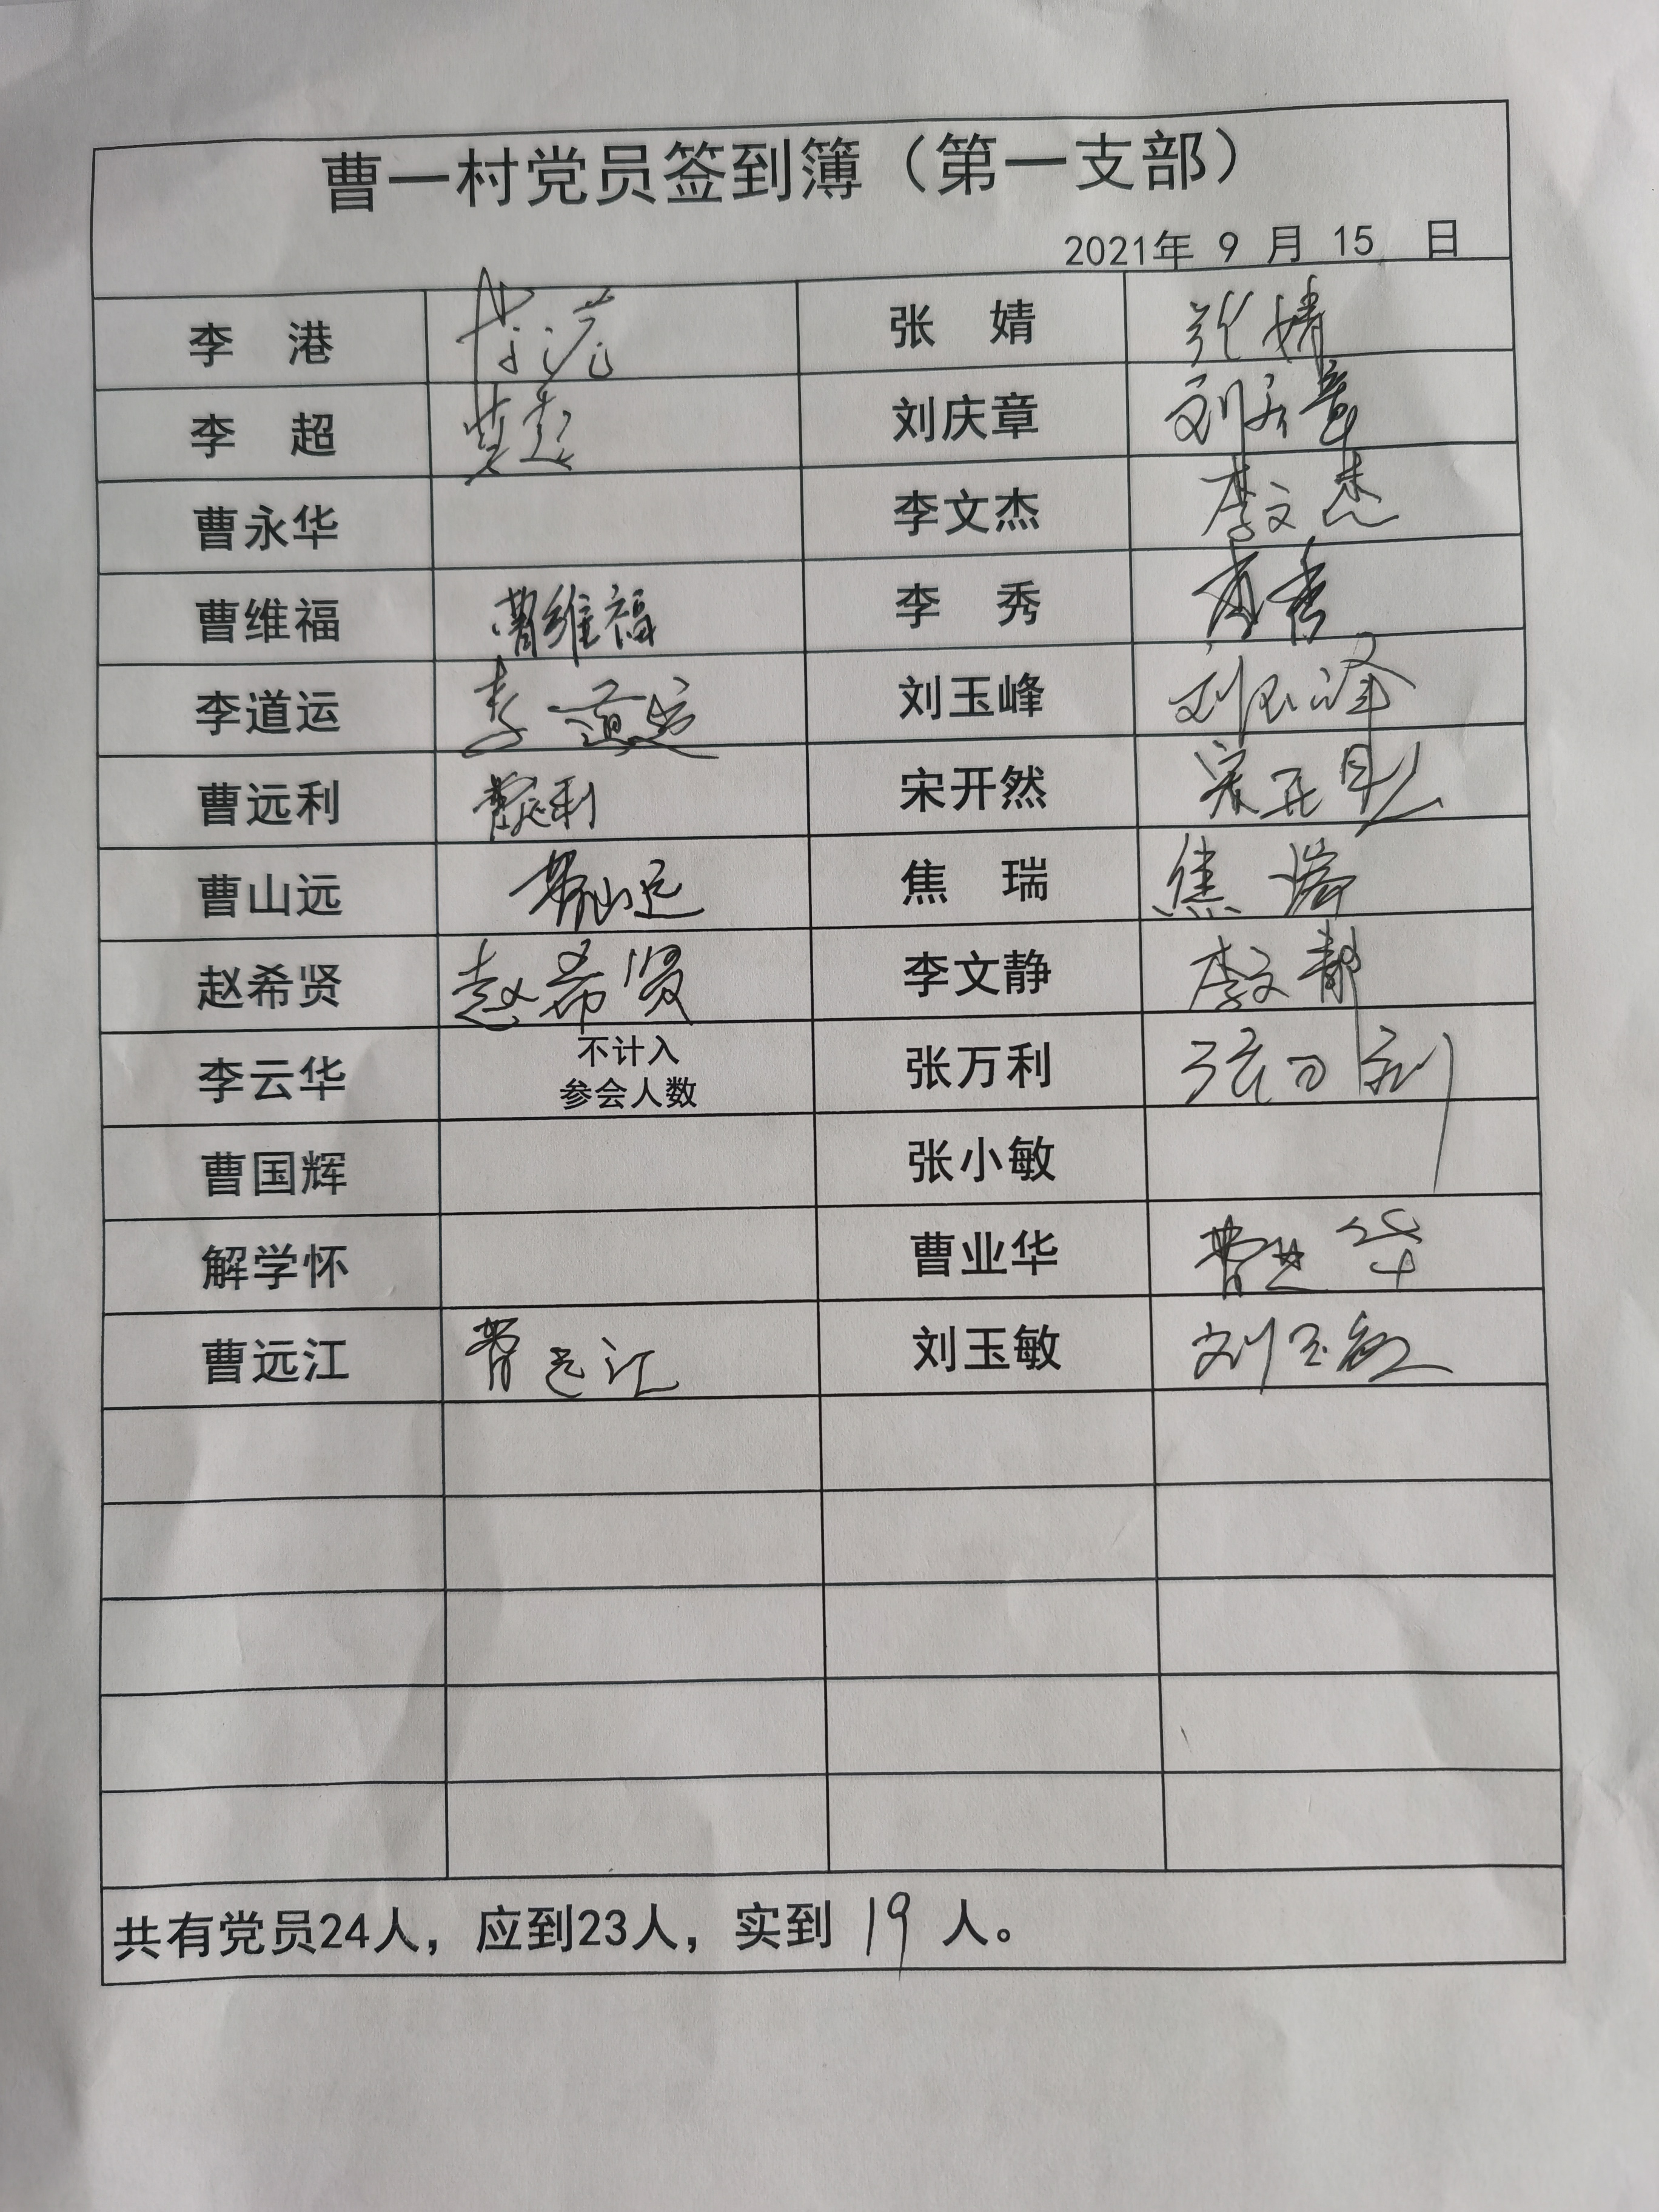 曹一村党员签到簿（第一支部）
2021年 9 月 15 日
李 港 李港 张 婧 张婧
李 超 李超 刘庆章 刘庆章
曹永华 李文杰 李文杰
曹维福 曹维福 李 秀 李秀
李道运 李道运 刘玉峰 刘玉峰
曹远利 曹远利 宋开然 宋开然
曹山远 曹山远 焦 瑞 焦瑞
赵希贤 赵希贤 李文静 李文静
李云华 不计入 张万利 张万利
参会人数
曹国辉 张小敏
解学怀 曹业华 曹业华
曹远江 曹远江 刘玉敏 刘玉敏
共有党员24人，应到23人，实到 19 人。